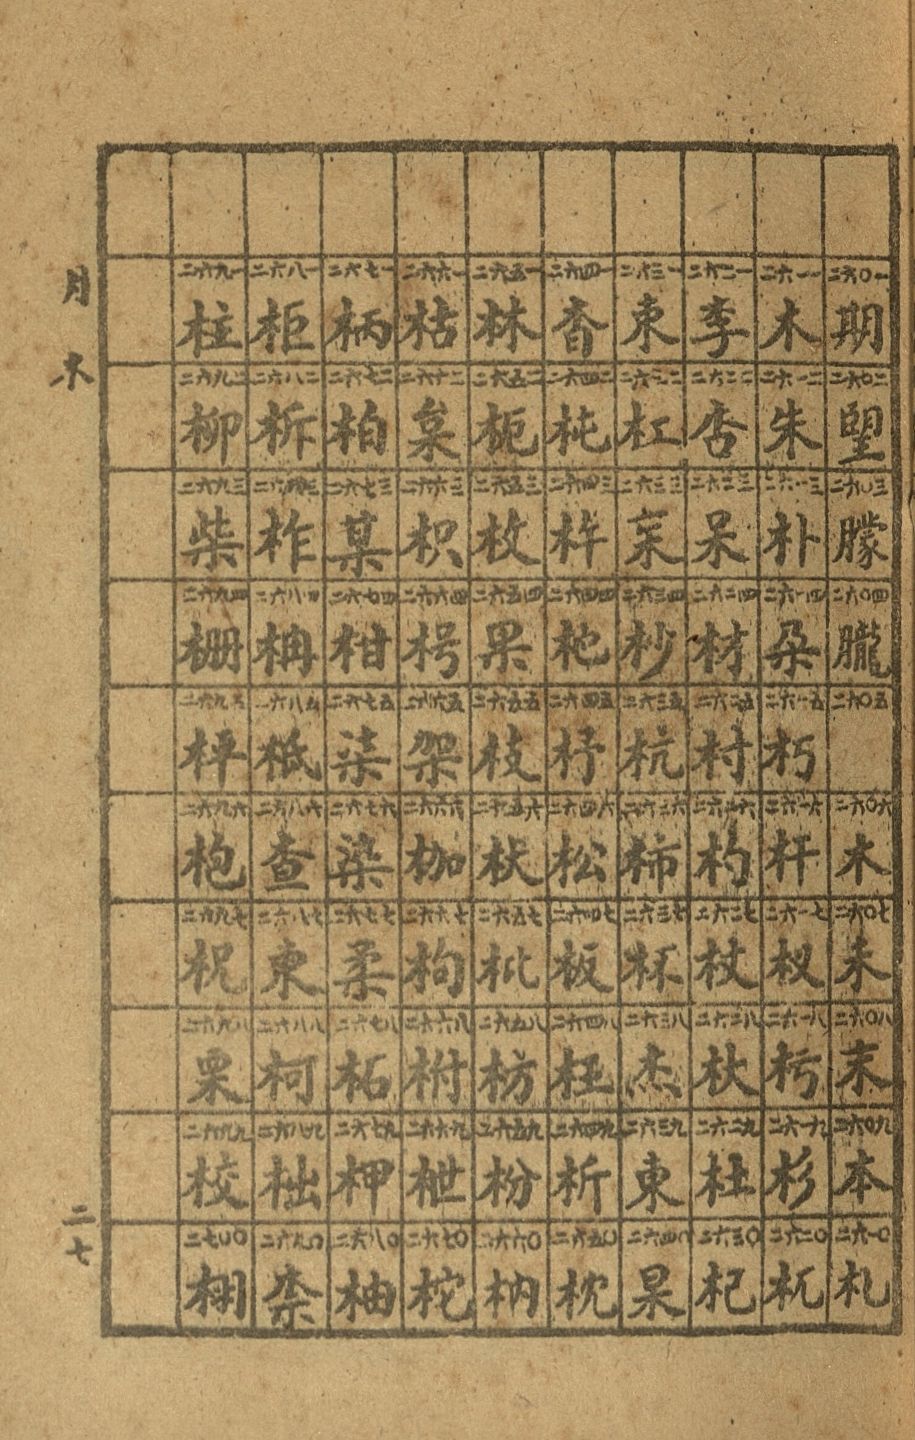 月 木
二六〇一 期 二六〇二 朢 二六〇三 朦 二六〇四 朧 二六〇五 二六〇六 木 二六〇七 未 二六〇八 末 二六〇九 本 二六一〇 札
二六一一 木 二六一二 朱 二六一三 朴 二六一四 朶 二六一五 朽 二六一六 杆 二六一七 杈 二六一八 杇 二六一九 杉 二六二〇 杌
二六二一 李 二六二二 杏 二六二三 呆 二六二四 材 二六二五 村 二六二六 杓 二六二七 杖 二六二八 杕 二六二九 杜 二六三〇 杞
二六三一 束 二六三二 杠 二六三三 杗 二六三四 杪 二六三五 杭 二六三六 柿 二六三七 杯 二六三八 杰 二六三九 東 二六四〇 杲
二六四一 杳 二六四二 杶 二六四三 杵 二六四四 杷 二六四五 杼 二六四六 松 二六四七 板 二六四八 枉 二六四九 析 二六五〇 枕
二六五一 林 二六五二 枙 二六五三 枚 二六五四 果 二六五五 枝 二六五六 二六五七 枇 二六五八 枋 二六五九 枌 二六六〇 枘
二六六一 枯 二六六二 枲 二六六三 枳 二六六四 枵 二六六五 架 二六六六 枷 二六六七 枸 二六六八 柎 二六六九 枻 二六七〇 柁
二六七一 柄 二六七二 柏 二六七三 某 二六七四 柑 二六七五 柒 二六七六 染 二六七七 柔 二六七八 柘 二六七九 柙 二六八〇 柚
二六八一 柜 二六八二 柝 二六八三 柞 二六八四 柟 二六八五 柢 二六八六 查 二六八七 柬 二六八八 柯 二六八九 柮 二六九〇 柰
二六九一 柱 二六九二 柳 二六九三 柴 二六九四 栅 二六九五 枰 二六九六 枹 二六九七 柷 二六九八 栗 二六九九 校 二七〇〇 栩
二七